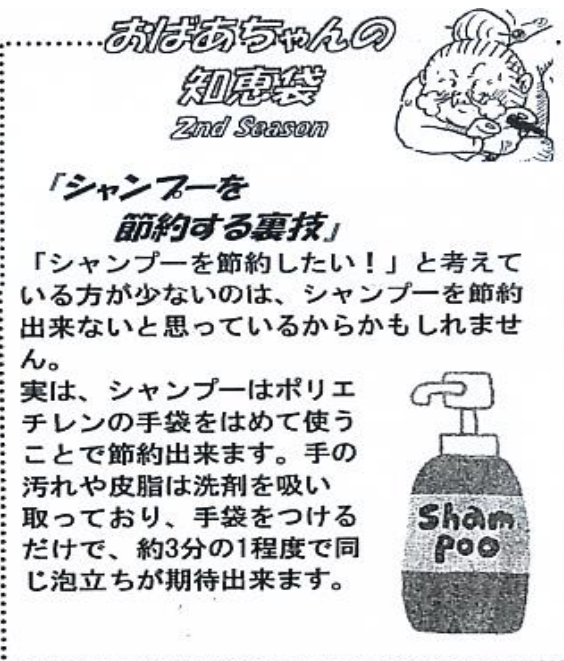 おばあちゃんの
知恵袋
2nd Season
『シャンプーを
節約する裏技』
「シャンプーを節約したい！」と考えて
いる方が少ないのは、シャンプーを節約
出来ないと思っているからかもしれませ
ん。
実は、シャンプーはポリエ
チレンの手袋をはめて使う
ことで節約出来ます。手の
汚れや皮脂は洗剤を吸い
取っており、手袋をつける
だけで、約3分の1程度で同
じ泡立ちが期待出来ます。
Sham
Poo